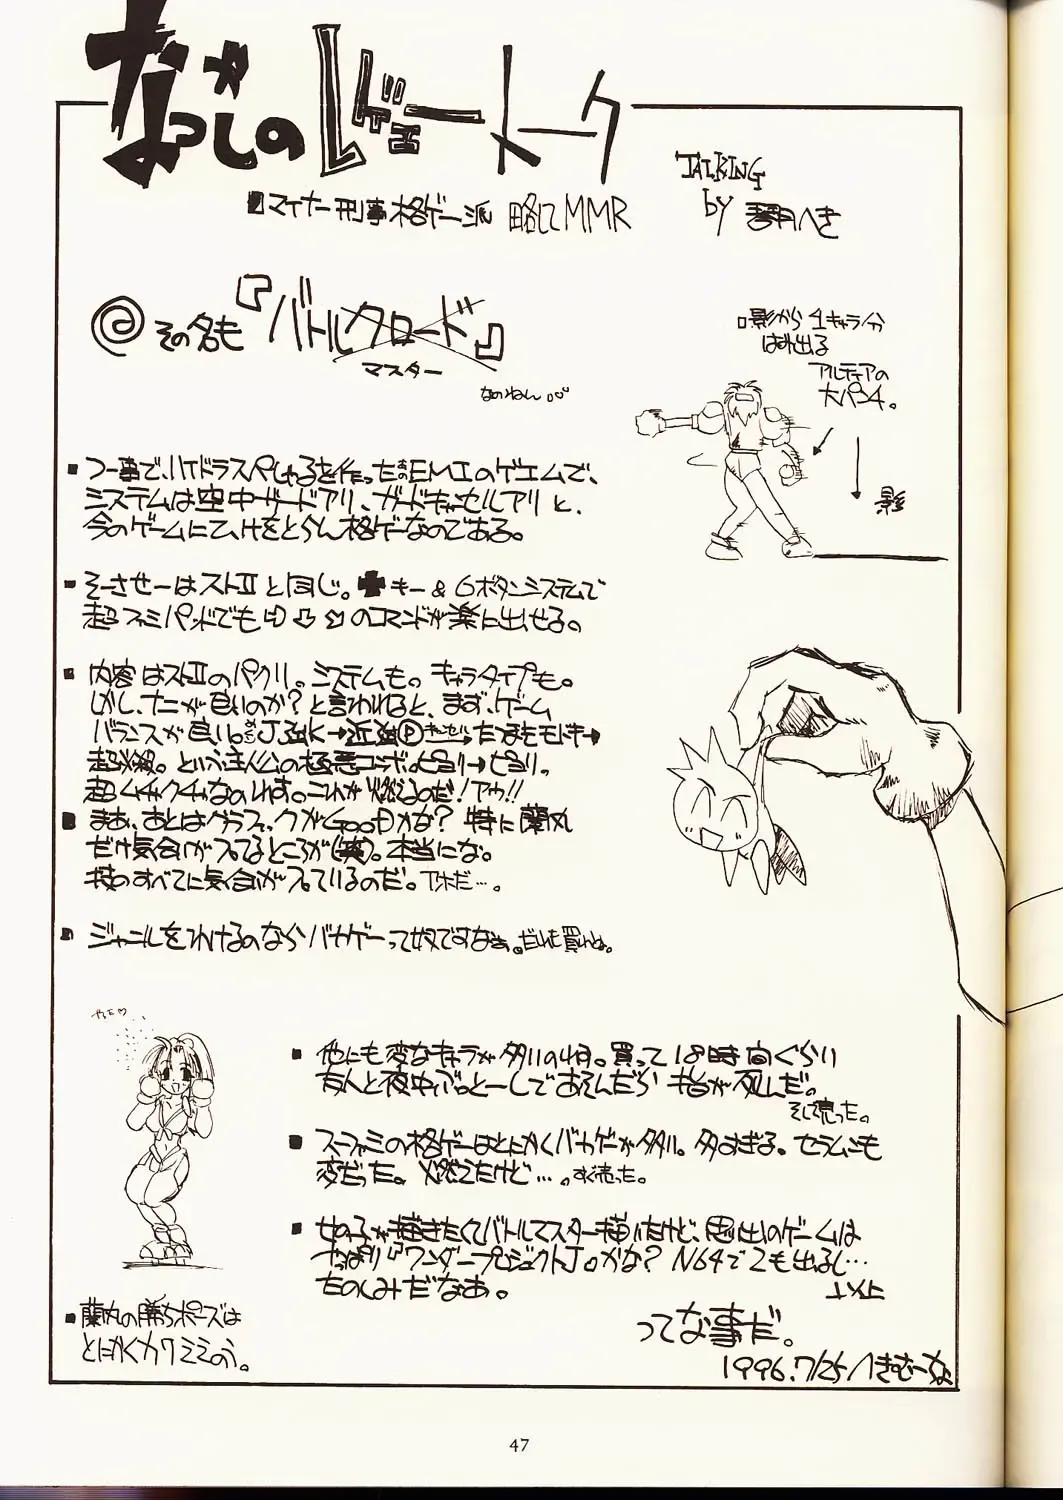 なつかしの レビュートーク
マイナー刑事格ゲー派 略してMMR
TALKING
by 琴月へき
@その名も『バトルクロード』
マスター
なのねん
影から1キャラ分
はみ出る
アルティアの
大パンチ。
影
つー事で、ハイドラスペしゃるを作ったEMIのゲエムで、
システムは空中ガードアリ、ガードキャンセルアリと、
今のゲームにひけをとらん格ゲーなのである。
そーさせーはストIIと同じ。✚キー&6ボタンシステムで
超ファミパッドでも⇨⇩⬂のコマンドが楽に出せる。
内容はストIIのパクリ。システムも。キャラタイプも。
しかし、ナニが良いのか?と言われると、まず、ゲーム
バランスが良い。J.強K→近強Ⓟキャンセル→たつまきモドキ→
超必殺。という主人公の極悪コンボ。ピヨリ→ピヨリ。
超ムチャクチャなのれす。これが燃えるのだ!アウ!!
まあ、あとはグラフィックがGooDかな?特に蘭丸
だけ気合いが入ってるところが(笑)。本当にな。
技のすべてに気合が入っているのだ。アホだ…。
ジャンルをわけるのならバカゲーって奴ですなぁ。だれも買わん。
やった♡
他にも変なキャラが多いのね。買って18時間ぐらい
友人と夜中ぶっとーしであそんだら 本台が死んだ。
そして売った。
スーファミの格ゲーはとにかくバカゲーが多い。多すぎる。セラムンも
変だった。燃えたけど…。すぐ売った。
女の子が描きたくてバトルマスター描いたけど、思い出のゲームは
やっぱり『ワンダープロジェクトJ』かな? N64で2も出るし…
たのしみだなあ。
以上
蘭丸の勝ちポーズは
とにかくカワエエのう。
ってな事だ。
1996.7/25/へきむーな
47